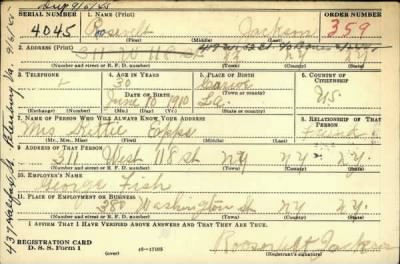 Dup 9/6/45
SERIAL NUMBER 1. NAME (Print) ORDER NUMBER
4045 Roosevelt Jackson 359
(First) (Middle) (Last)
2. ADDRESS (Print)
311 W 118 St NY NY
(Number and street or R. F. D. number) (Town) (County) (State)
3. TELEPHONE 4. AGE IN YEARS 5. PLACE OF BIRTH 6. COUNTRY OF CITIZENSHIP
30
DATE OF BIRTH (Town or county)
June 1910 La. U.S.
(Exchange) (Number) (Mo.) (Day) (Yr.) (State or country)
7. NAME OF PERSON WHO WILL ALWAYS KNOW YOUR ADDRESS 8. RELATIONSHIP OF THAT PERSON
Mrs Epps Friend
(Mr., Mrs., Miss) (First) (Middle) (Last)
9. ADDRESS OF THAT PERSON
311 West 118 St NY NY N.Y.
(Number and street or R. F. D. number) (Town) (County) (State)
10. EMPLOYER'S NAME
George Fish
11. PLACE OF EMPLOYMENT OR BUSINESS
380 Washington St NY N.Y.
(Number and street or R. F. D. number) (Town) (County) (State)
I AFFIRM THAT I HAVE VERIFIED ABOVE ANSWERS AND THAT THEY ARE TRUE.
REGISTRATION CARD
D. S. S. Form 1 16-17105 Roosevelt Jackson
(Registrant's signature)
437 Halifax St. Petersburg Va. 9/6/45